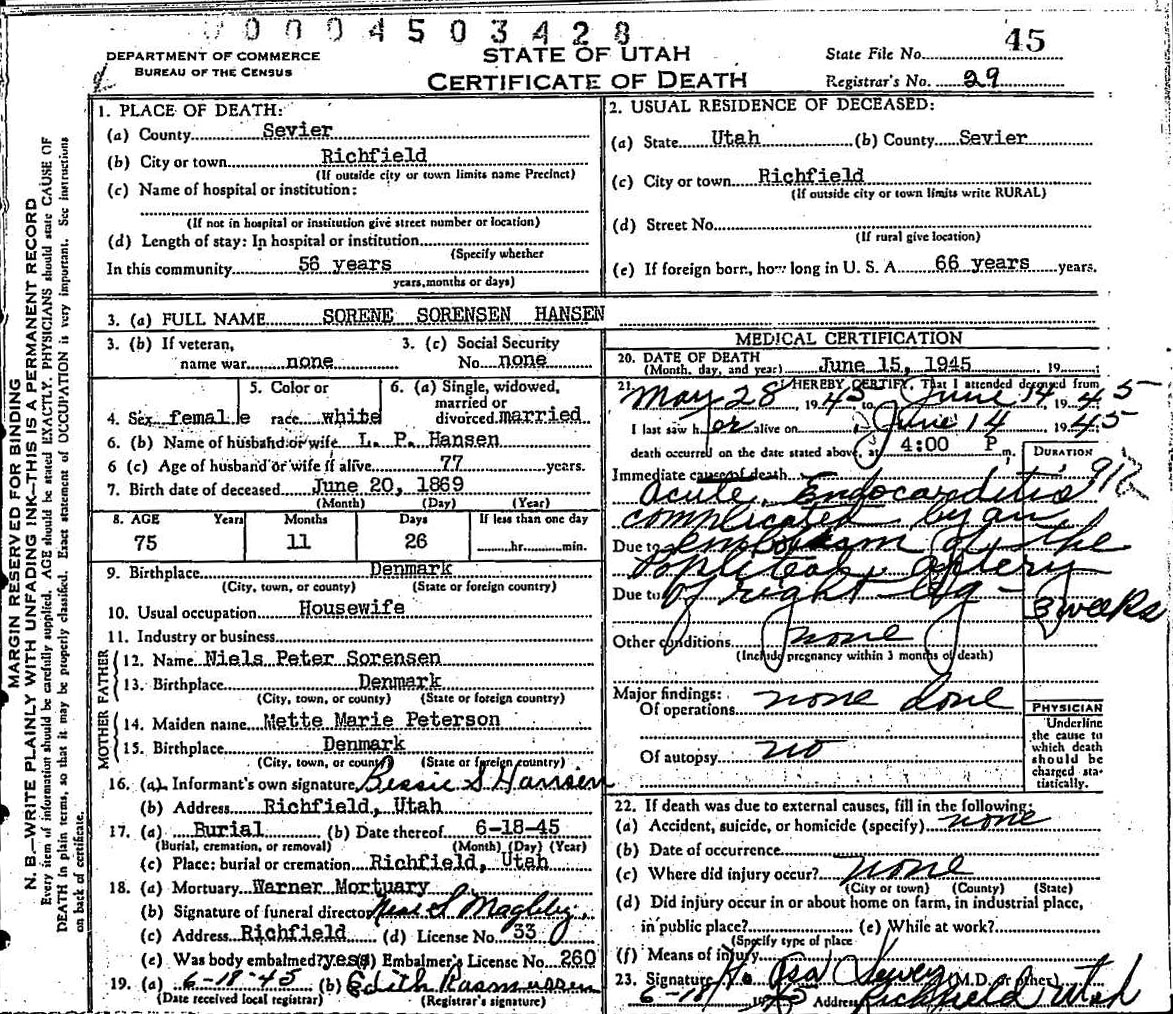 0004503428
DEPARTMENT OF COMMERCE
BUREAU OF THE CENSUS
STATE OF UTAH
CERTIFICATE OF DEATH
State File No. 45
Registrar's No. 29
MARGIN RESERVED FOR BINDING
N. B.—WRITE PLAINLY WITH UNFADING INK—THIS IS A PERMANENT RECORD
Every item of information should be carefully supplied. AGE should be stated EXACTLY. PHYSICIANS should state CAUSE OF
DEATH in plain terms, so that it may be properly classified. Exact statement of OCCUPATION is very important. See instructions
on back of certificate.
1. PLACE OF DEATH:
(a) County Sevier
(b) City or town Richfield
(If outside city or town limits name Precinct)
(c) Name of hospital or institution:
(If not in hospital or institution give street number or location)
(d) Length of stay: In hospital or institution
(Specify whether
In this community 56 years
years, months or days)
2. USUAL RESIDENCE OF DECEASED:
(a) State Utah (b) County Sevier
(c) City or town Richfield
(If outside city or town limits write RURAL)
(d) Street No.
(If rural give location)
(e) If foreign born, how long in U. S. A. 66 years years.
3. (a) FULL NAME SORENE SORENSEN HANSEN
3. (b) If veteran, 3. (c) Social Security
name war none No. none
5. Color or 6. (a) Single, widowed,
married or
4. Sex female race white divorced married
6. (b) Name of husband or wife L. P. Hansen
6 (c) Age of husband or wife if alive 77 years.
7. Birth date of deceased June 20, 1869
(Month) (Day) (Year)
8. AGE Years Months Days If less than one day
75 11 26 hr. min.
9. Birthplace Denmark
(City, town, or county) (State or foreign country)
10. Usual occupation Housewife
11. Industry or business
FATHER
12. Name Niels Peter Sorensen
13. Birthplace Denmark
(City, town, or county) (State or foreign country)
MOTHER
14. Maiden name Mette Marie Peterson
15. Birthplace Denmark
(City, town, or county) (State or foreign country)
16. (a) Informant's own signature Bessie S Hansen
(b) Address Richfield, Utah
17. (a) Burial (b) Date thereof 6-18-45
(Burial, cremation, or removal) (Month) (Day) (Year)
(c) Place: burial or cremation Richfield, Utah
18. (a) Mortuary Warner Mortuary
(b) Signature of funeral director S Magleby
(c) Address Richfield (d) License No. 33
(e) Was body embalmed? yes Embalmer's License No. 260
19. (a) 6-18-45 (b) Edith Rasmussen
(Date received local registrar) (Registrar's signature)
MEDICAL CERTIFICATION
20. DATE OF DEATH
(Month, day, and year) June 15, 1945 19
21. I HEREBY CERTIFY, That I attended deceased from
May 28, 1945 to June 14, 1945
I last saw her alive on June 14 1945
death occurred on the date stated above, at 4:00 P m.
DURATION
Immediate cause of death
Acute Endocarditis
complicated by an
Due to embolism of the
popliteal artery
Due to of right leg -
3 weeks
Other conditions none
(Include pregnancy within 3 months of death)
Major findings:
Of operations none done
Of autopsy no
PHYSICIAN
Underline
the cause to
which death
should be
charged sta-
tistically.
22. If death was due to external causes, fill in the following:
(a) Accident, suicide, or homicide (specify) none
(b) Date of occurrence
(c) Where did injury occur? none
(City or town) (County) (State)
(d) Did injury occur in or about home on farm, in industrial place,
in public place? (e) While at work?
(Specify type of place
(f) Means of injury
23. Signature Asa Dewey (M.D. or other)
6-18 1945 Address Richfield Utah